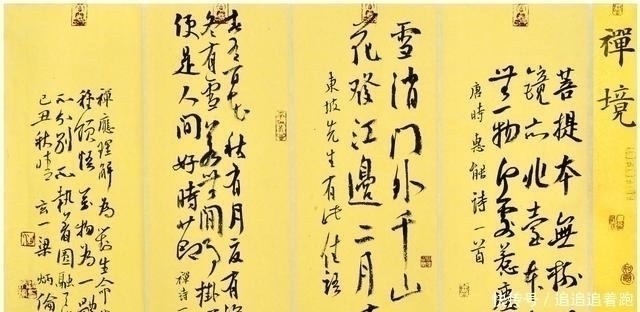 禪境
菩提本無樹
鏡亦非臺本
無一物何處惹塵
唐時惠能詩一首
雪消門外千山
花發江邊二月
東坡先生有此佳語
春有百花秋有月夏有涼
冬有雪若無閒事掛
便是人間好時節 禪詩一
禪應理解為對生命
種頓悟萬物為一
不分別不執着圓融了
己丑秋 玄一梁炳倫
快传号／追追追着跑